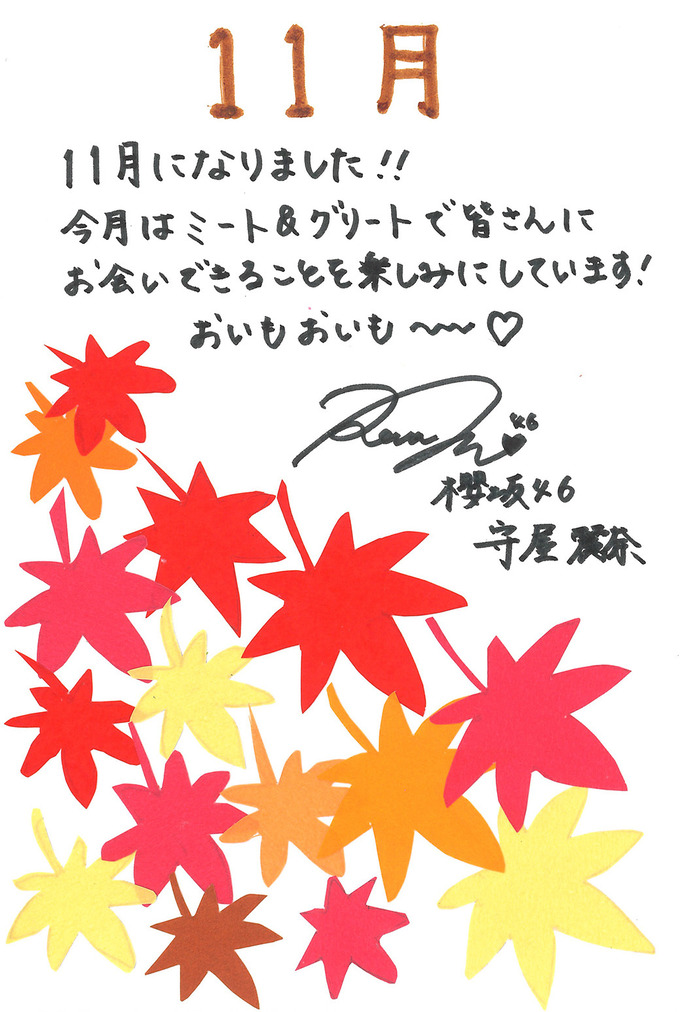 11月
11月になりました!!
今月はミート&グリートで皆さんに
お会いできることを楽しみにしています!
おいもおいも〜〜♡
46
櫻坂46
守屋麗奈